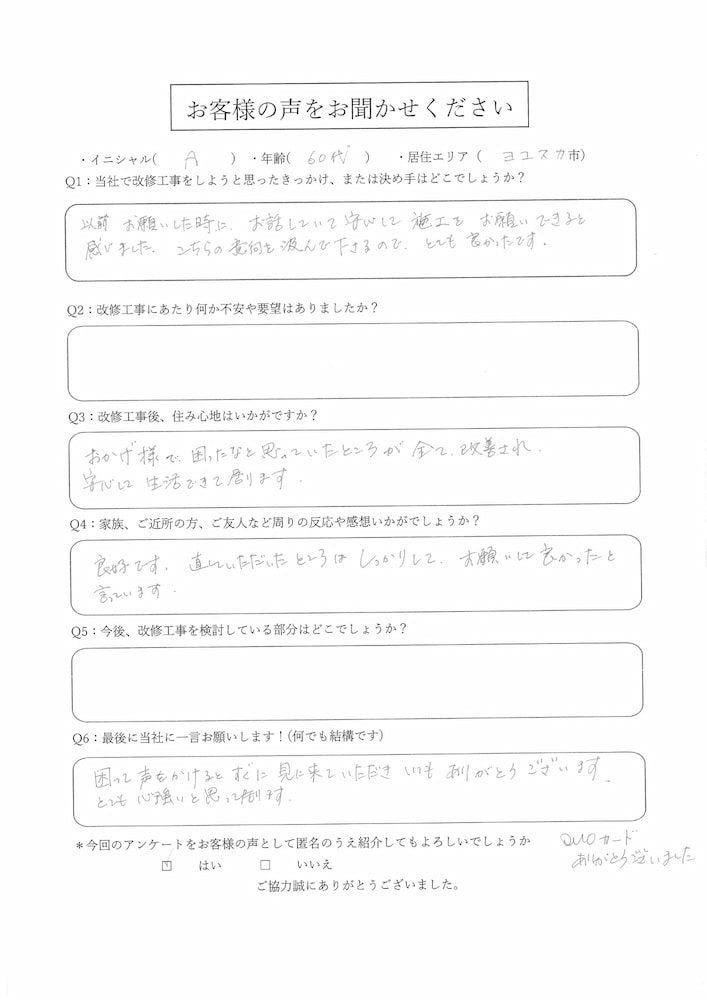 お客様の声をお聞かせください
・イニシャル( A ) ・年齢( 60代 ) ・居住エリア ( ヨコスカ市)
Q1：当社で改修工事をしようと思ったきっかけ、または決め手はどこでしょうか？
以前 お願いした時に、お話していて安心して施工を お願いできると
感じました。こちらの意向を汲んで下さるので、とても良かったです。
Q2：改修工事にあたり何か不安や要望はありましたか？
Q3：改修工事後、住み心地はいかがですか？
おかげ様で、困ったなと思っていたところが 全て、改善され、
安心して 生活できて居ります。
Q4：家族、ご近所の方、ご友人など周りの反応や感想いかがでしょうか？
良好です。直していただいたところは しっかりして、お願いして良かったと
言っています。
Q5：今後、改修工事を検討している部分はどこでしょうか？
Q6：最後に当社に一言お願いします！(何でも結構です)
困って声をかけると すぐに 見に来ていただき いつも ありがとう ございます。
とても 心強いと思って居ます。
＊今回のアンケートをお客様の声として匿名のうえ紹介してもよろしいでしょうか
はい □ いいえ
QUOカード
ありがとうございました
ご協力誠にありがとうございました。